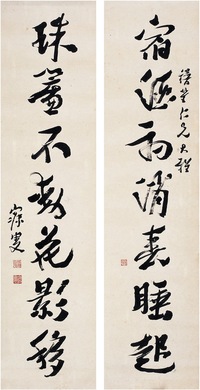 宿初消春睡起
仁兄大雅
珠簾不動花影移
寐叟